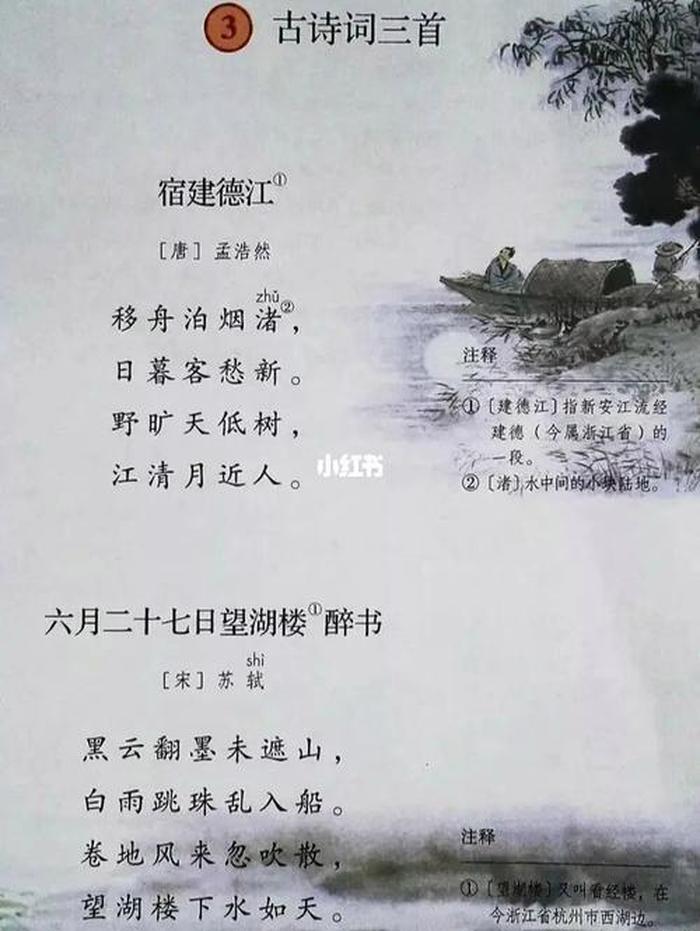 3 古诗词三首
宿建德江①
〔唐〕孟浩然
zhǔ
移舟泊烟渚②，
日暮客愁新。
野旷天低树，
江清月近人。
注释
①〔建德江〕指新安江流经
建德（今属浙江省）的
一段。
②〔渚〕水中间的小块陆地。
小红书
六月二十七日望湖楼①醉书
shì
〔宋〕苏轼
黑云翻墨未遮山，
白雨跳珠乱入船。
卷地风来忽吹散，
望湖楼下水如天。
注释
①〔望湖楼〕又叫看经楼，在
今浙江省杭州市西湖边。